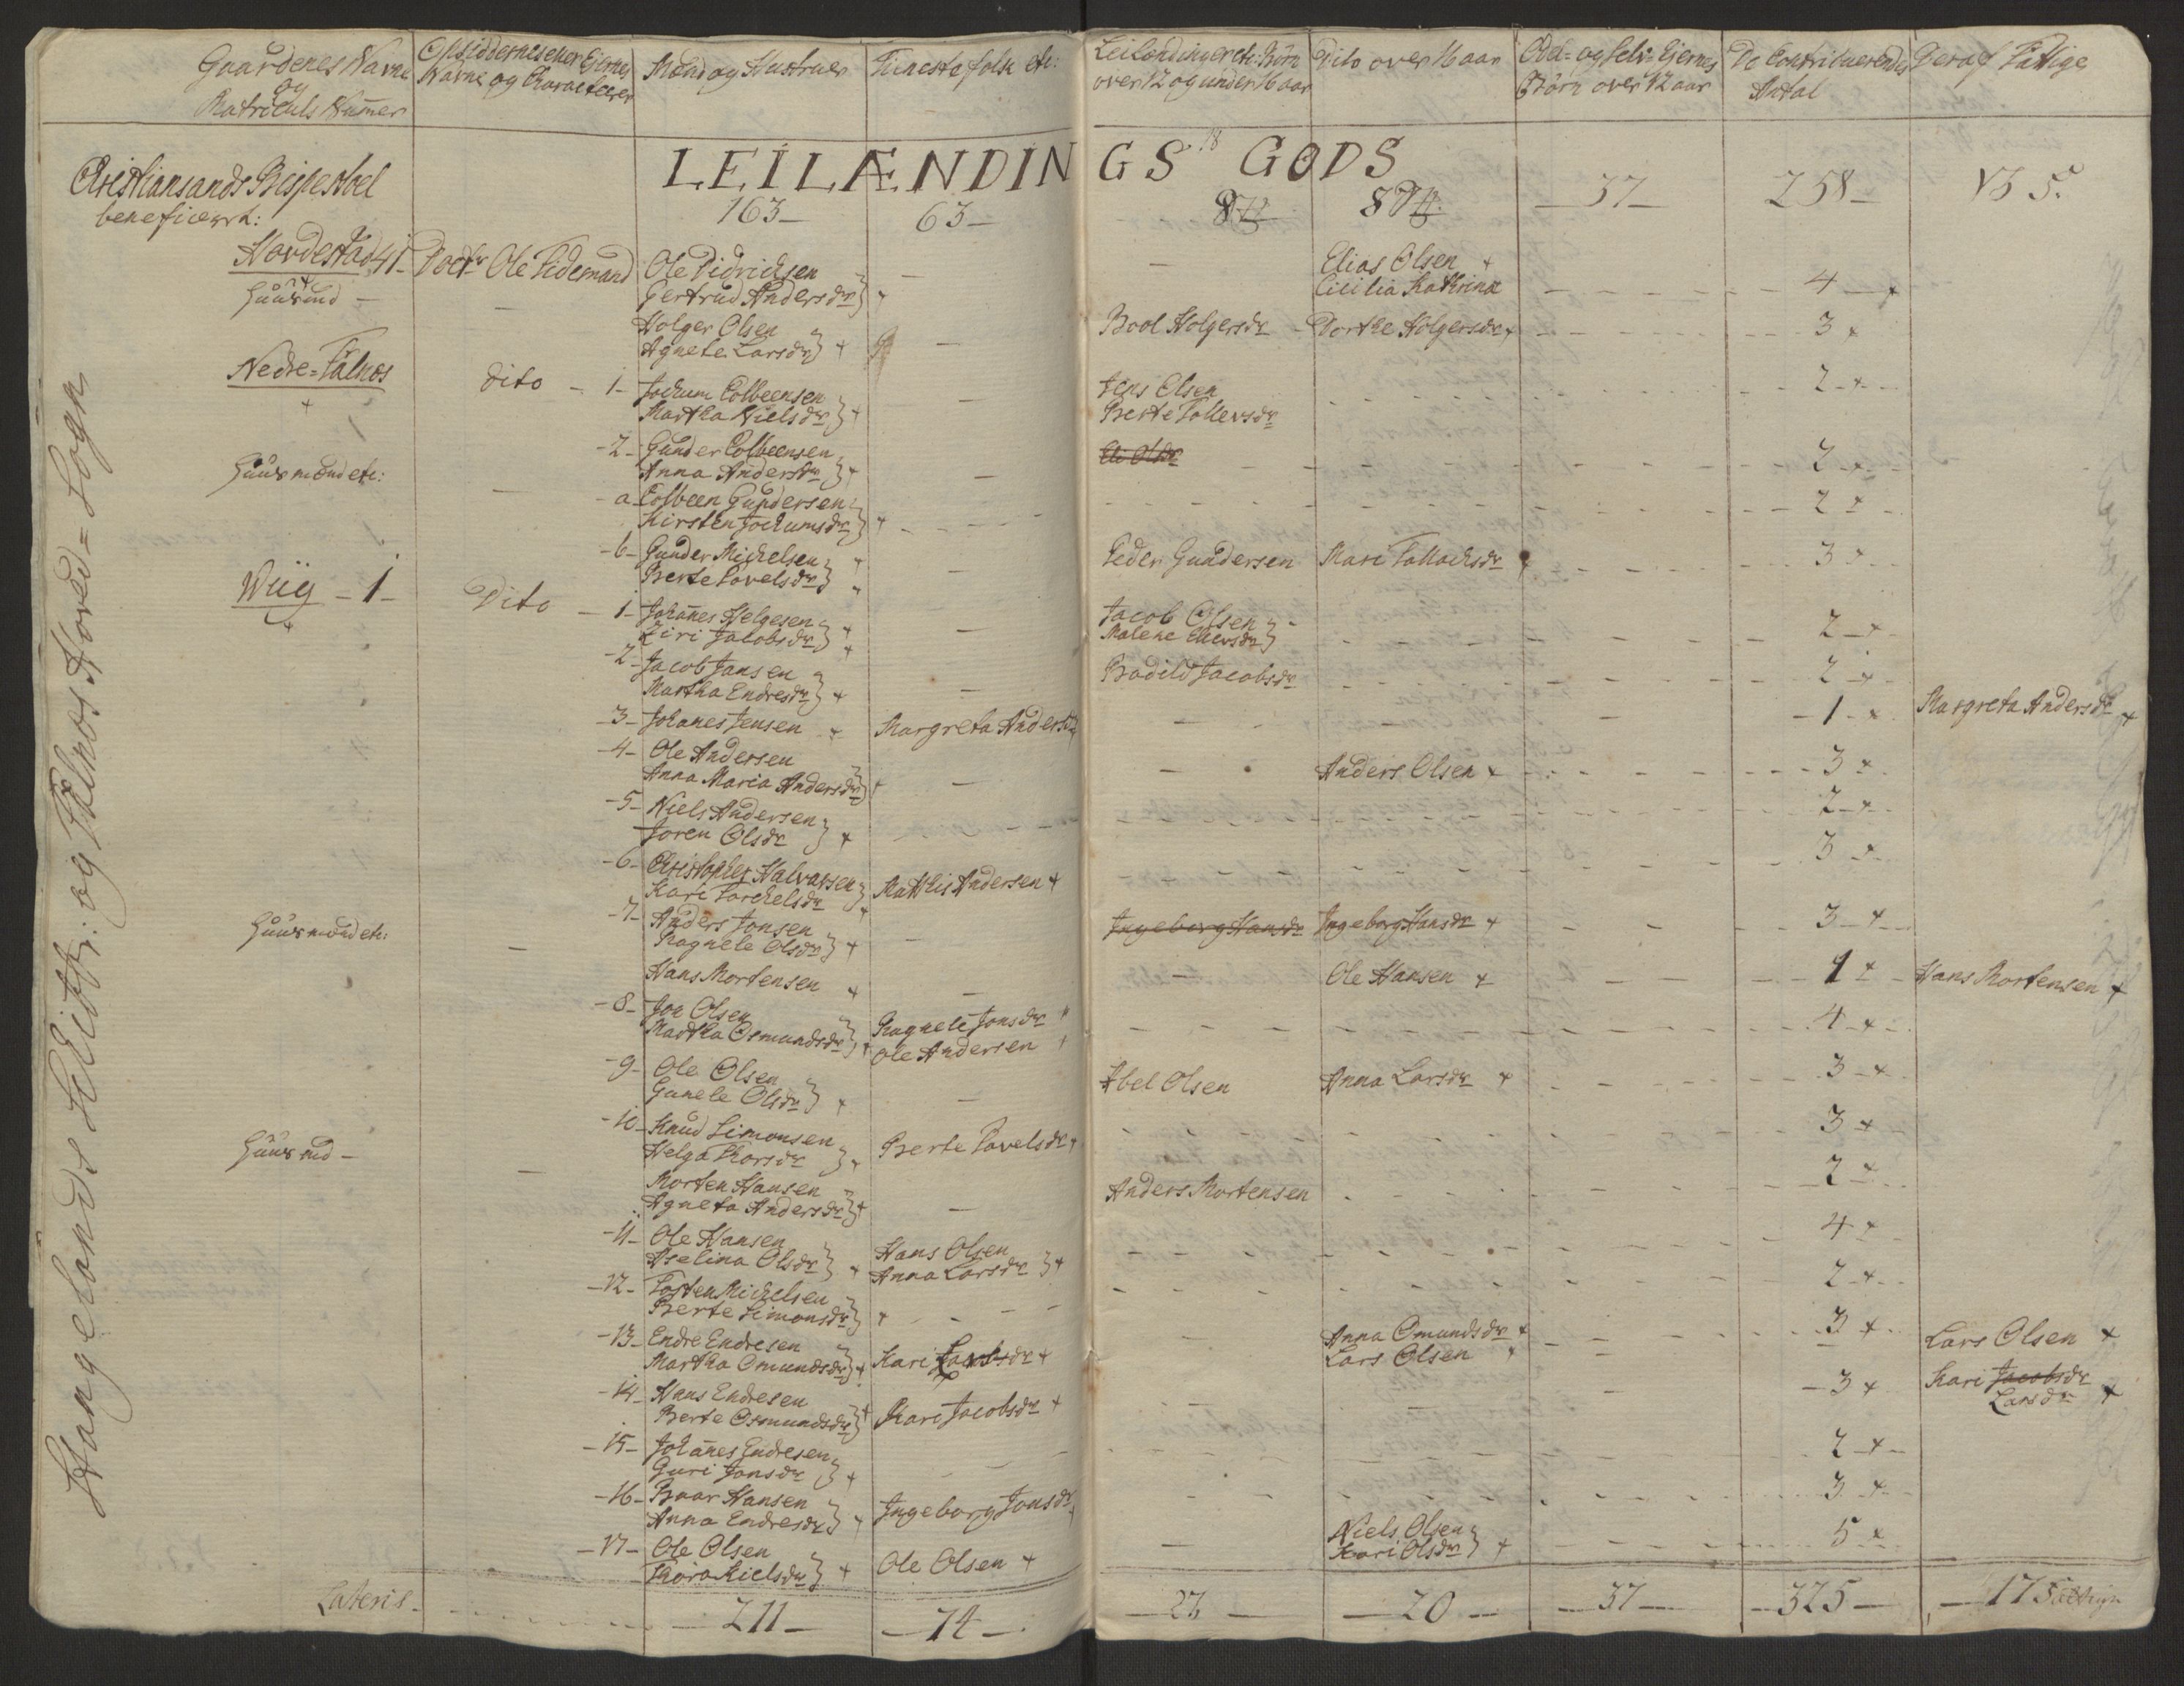 Gaardenes Navne
og
Matriculs Nummer
Opsiddernes eller Eiernes
Navne og Characterer
Mænd og Hustruer
Tienestefolk etc:
Leilendinger etc: Børn
over 12 og under 16 aar
Dito over 16 aar
Odel- og Selv-Ejernes
Børn over 12 aar
De Contribuerendes
Antal
Deraf Fattige
Stangelands Schibtr: og Falnæs Hoved=Sogn
LEILÆNDINGS GODS
Christiansands Bispestoel
beneficeret:
163 - 63 - 37 - 258 - 13 5.
Hordestad 41 - Doctr Ole Tidemand
Ole Didrichsen
Gertrud Andersdr
Elias Olsen +
Cicilia Kathrina - 4 +
Huusmd -
Holger Olsen
Agnete Larsdr +
Bool Holgersdr - Dorthe Holgersdr + 3 +
Nedre=Falnæs dito - 1 - Jochum Colbeensen
Martha Nielsdr +
Jens Olsen
Berte Tollevsdr 2 +
- 2 - Gunder Colbeensen
Anna Andersdr +
Eli Olsdr 2 +
Huusmænd etc:
- a Colbeen Gundersen
Kirsten Jochumsdr + 2 +
- b - Gunder Michelsen
Berte Povelsdr
Peder Gundersen Mari Tollachsdr + 3 +
Wiig - 1 - Dito - 1 - Johannes Helgesen
Ziri Jacobsdr +
Jacob Olsen
Malene Ellersdr 2 +
- 2 - Jacob Jansen
Martha Endresdr +
Bodild Jacobsdr 2 +
- 3 - Johanes Jensen + Margreta Andersdr - 1 + Margreta Andersdr +
- 4 - Ole Andersen
Anna Maria Andersdr + Anders Olsen + 3 +
- 5 - Niels Andersen
Joren Olsdr + 2 +
- 6 - Christopher Halvorsen
Kari Torchelsdr + Matthis Andersen + 3 +
- 7 - Anders Jonsen
Ragnele Olsdr +
Ingeborg Hansdr Ingeborg Hansdr + 3 +
Huusmænd etc:
Hans Mortensen + Ole Hansen + 1 + Hans Mortensen +
- 8 - Jon Olsen
Martha Osmundsdr +
Ragnele Jonsdr
Ole Andersen + 4 +
- 9 - Ole Olsen
Gunele Olsdr +
Abel Olsen Anna Larsdr + 3 +
- 10 - Knud Simonsen
Helga Thorsdr + Berte Povelsdr + 3 +
Huusmd -
Morten Hansen
Agneta Andersdr + Anders Mortensen 2 +
- 11 - Ole Hansen
Aselina Olsdr +
Hans Olsen
Anna Larsdr + 4 +
- 12 - Tosten Michelsen
Berte Simonsdr + 2 +
- 13 - Endre Endresen
Martha Omundsdr + Kari Larsdr +
Anna Omundsdr +
Lars Olsen + 3 + Lars Olsen +
- 14 - Hans Endresen
Berte Osmundsdr + Kari Jacobsdr + - 3 + Kari Jacobsdr
Larsdr +
- 15 - Johannes Endresen
Guri Jonsdr + 2 +
- 16 - Baar Hansen
Anna Endresdr + Ingeborg Jonsdr 3 +
- 17 - Ole Olsen
Thora Nielsdr + Ole Olsen +
Niels Olsen
Kari Olsdr + 5 +
Lateris - 211 - - 74 - - 23 - - 20 - - 37 - - 325 - - 17